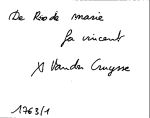 De Rio de marie
fa vincent
A Vander Cruysse
1763/1